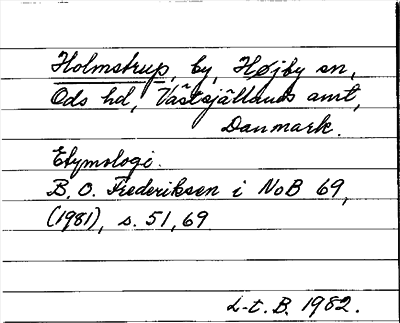 Holmstrup, by, Højby sn,
Ods hd, Västsjällands amt,
Danmark.
Etymologi.
B. O. Frederiksen i NoB 69,
(1981), s. 51, 69
L-t. B. 1982.